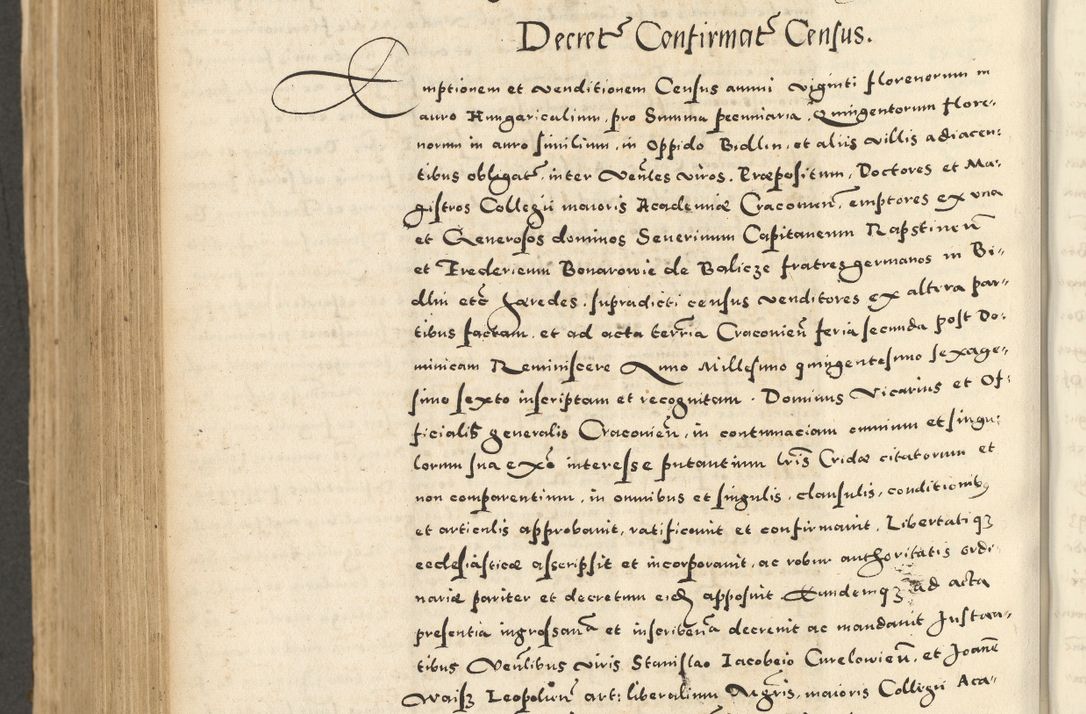 Decret~ Confirmat~ Census.
Emptionem et venditionem Census annui viginti florenorum in
auro Hungaricalium, pro Summa pecuniaria, Quingentorum flore-
norum in auro similium, in Oppido Bidlin, et aliis villis adiacen:
tibus obligat~, inter Ven~les viros, Præpositum, Doctores et Ma:
gistros Collegii maioris Academiæ Cracouien~, emptores ex una
et Generosos dominos Seuerinum Capitaneum Rapstinen~
et Fredericum Bonarowie de Balicze fratres germanos in Bi-
dlin etc~ hæredes, supradicti census venditores ex altera par-
tibus factam, et ad acta terr~ia Cracouien~ feria secunda post Do-
minicam Reminiscere Anno Millesimo quingentesimo sexage-
simo sexto inscriptam et recognitam. Dominus Vicarius et Of:
ficialis generalis Cracouien~, in contumaciam omnium et singu:
lorum sua ex~o interesse putantium lr~is Cridæ citatorum et
non comparentium, in omnibus et singulis, clausulis, conditionib9
et articulis approbauit, ratificauit et confirmauit, Libertatiqꝫ
ecclesiasticæ asscripsit et incorporauit, ac robur authoritatis ordi:
nariæ pariter et decretum eid~ apposuit Eundemqꝫ ad acta
presentia ingrossan~a et inscriben~a decreuit ac mandauit Instan-
tibus Ven~libus viris Stanislao Iacobeio Curelowien~, et Joann~e
Waisz Leopolien~ art: liberalium Mg~ris, maioris Collegii Aca-